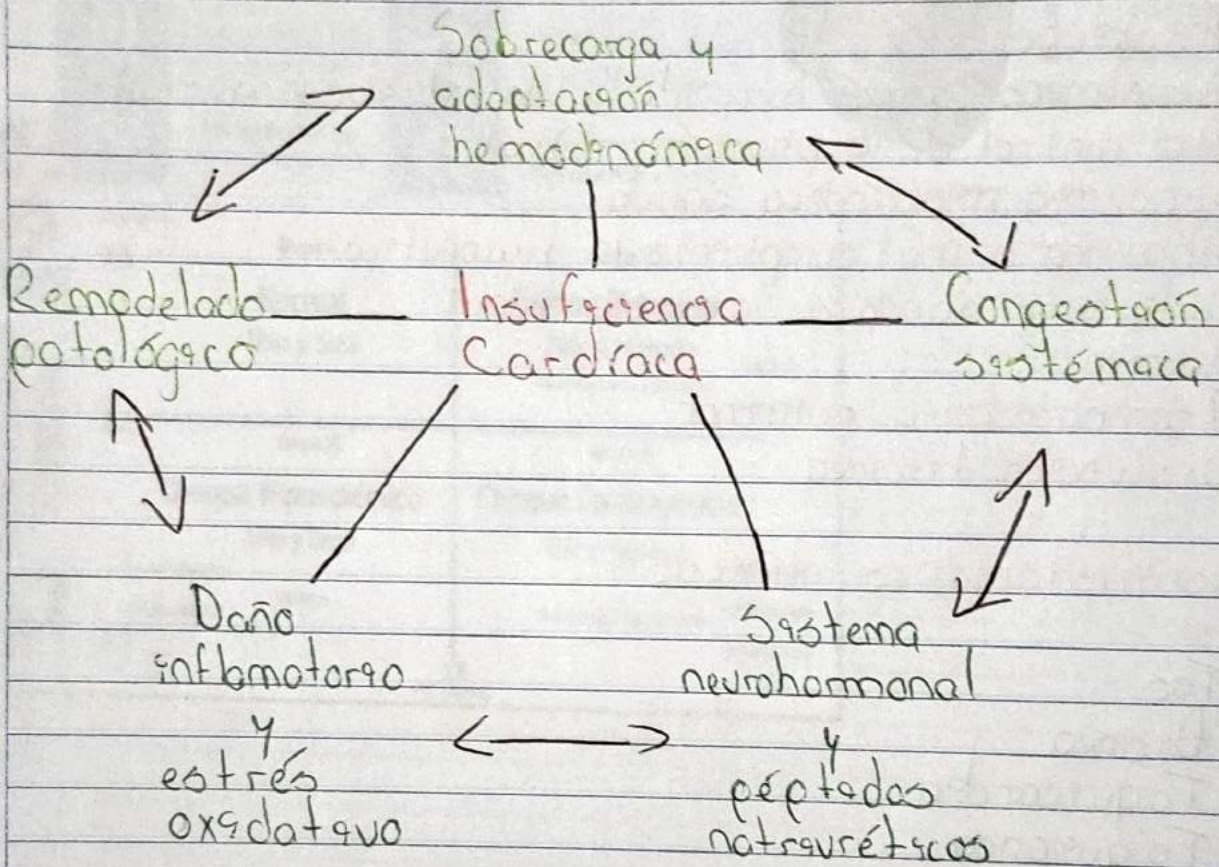 Sobrecarga y
adaptación
hemodinámica
Remodelado
patológico
Insuficiencia
Cardíaca
Congestión
sistémica
Daño
inflamatorio
y
estrés
oxidativo
Sistema
neurohormonal
y
péptidos
natriuréticos